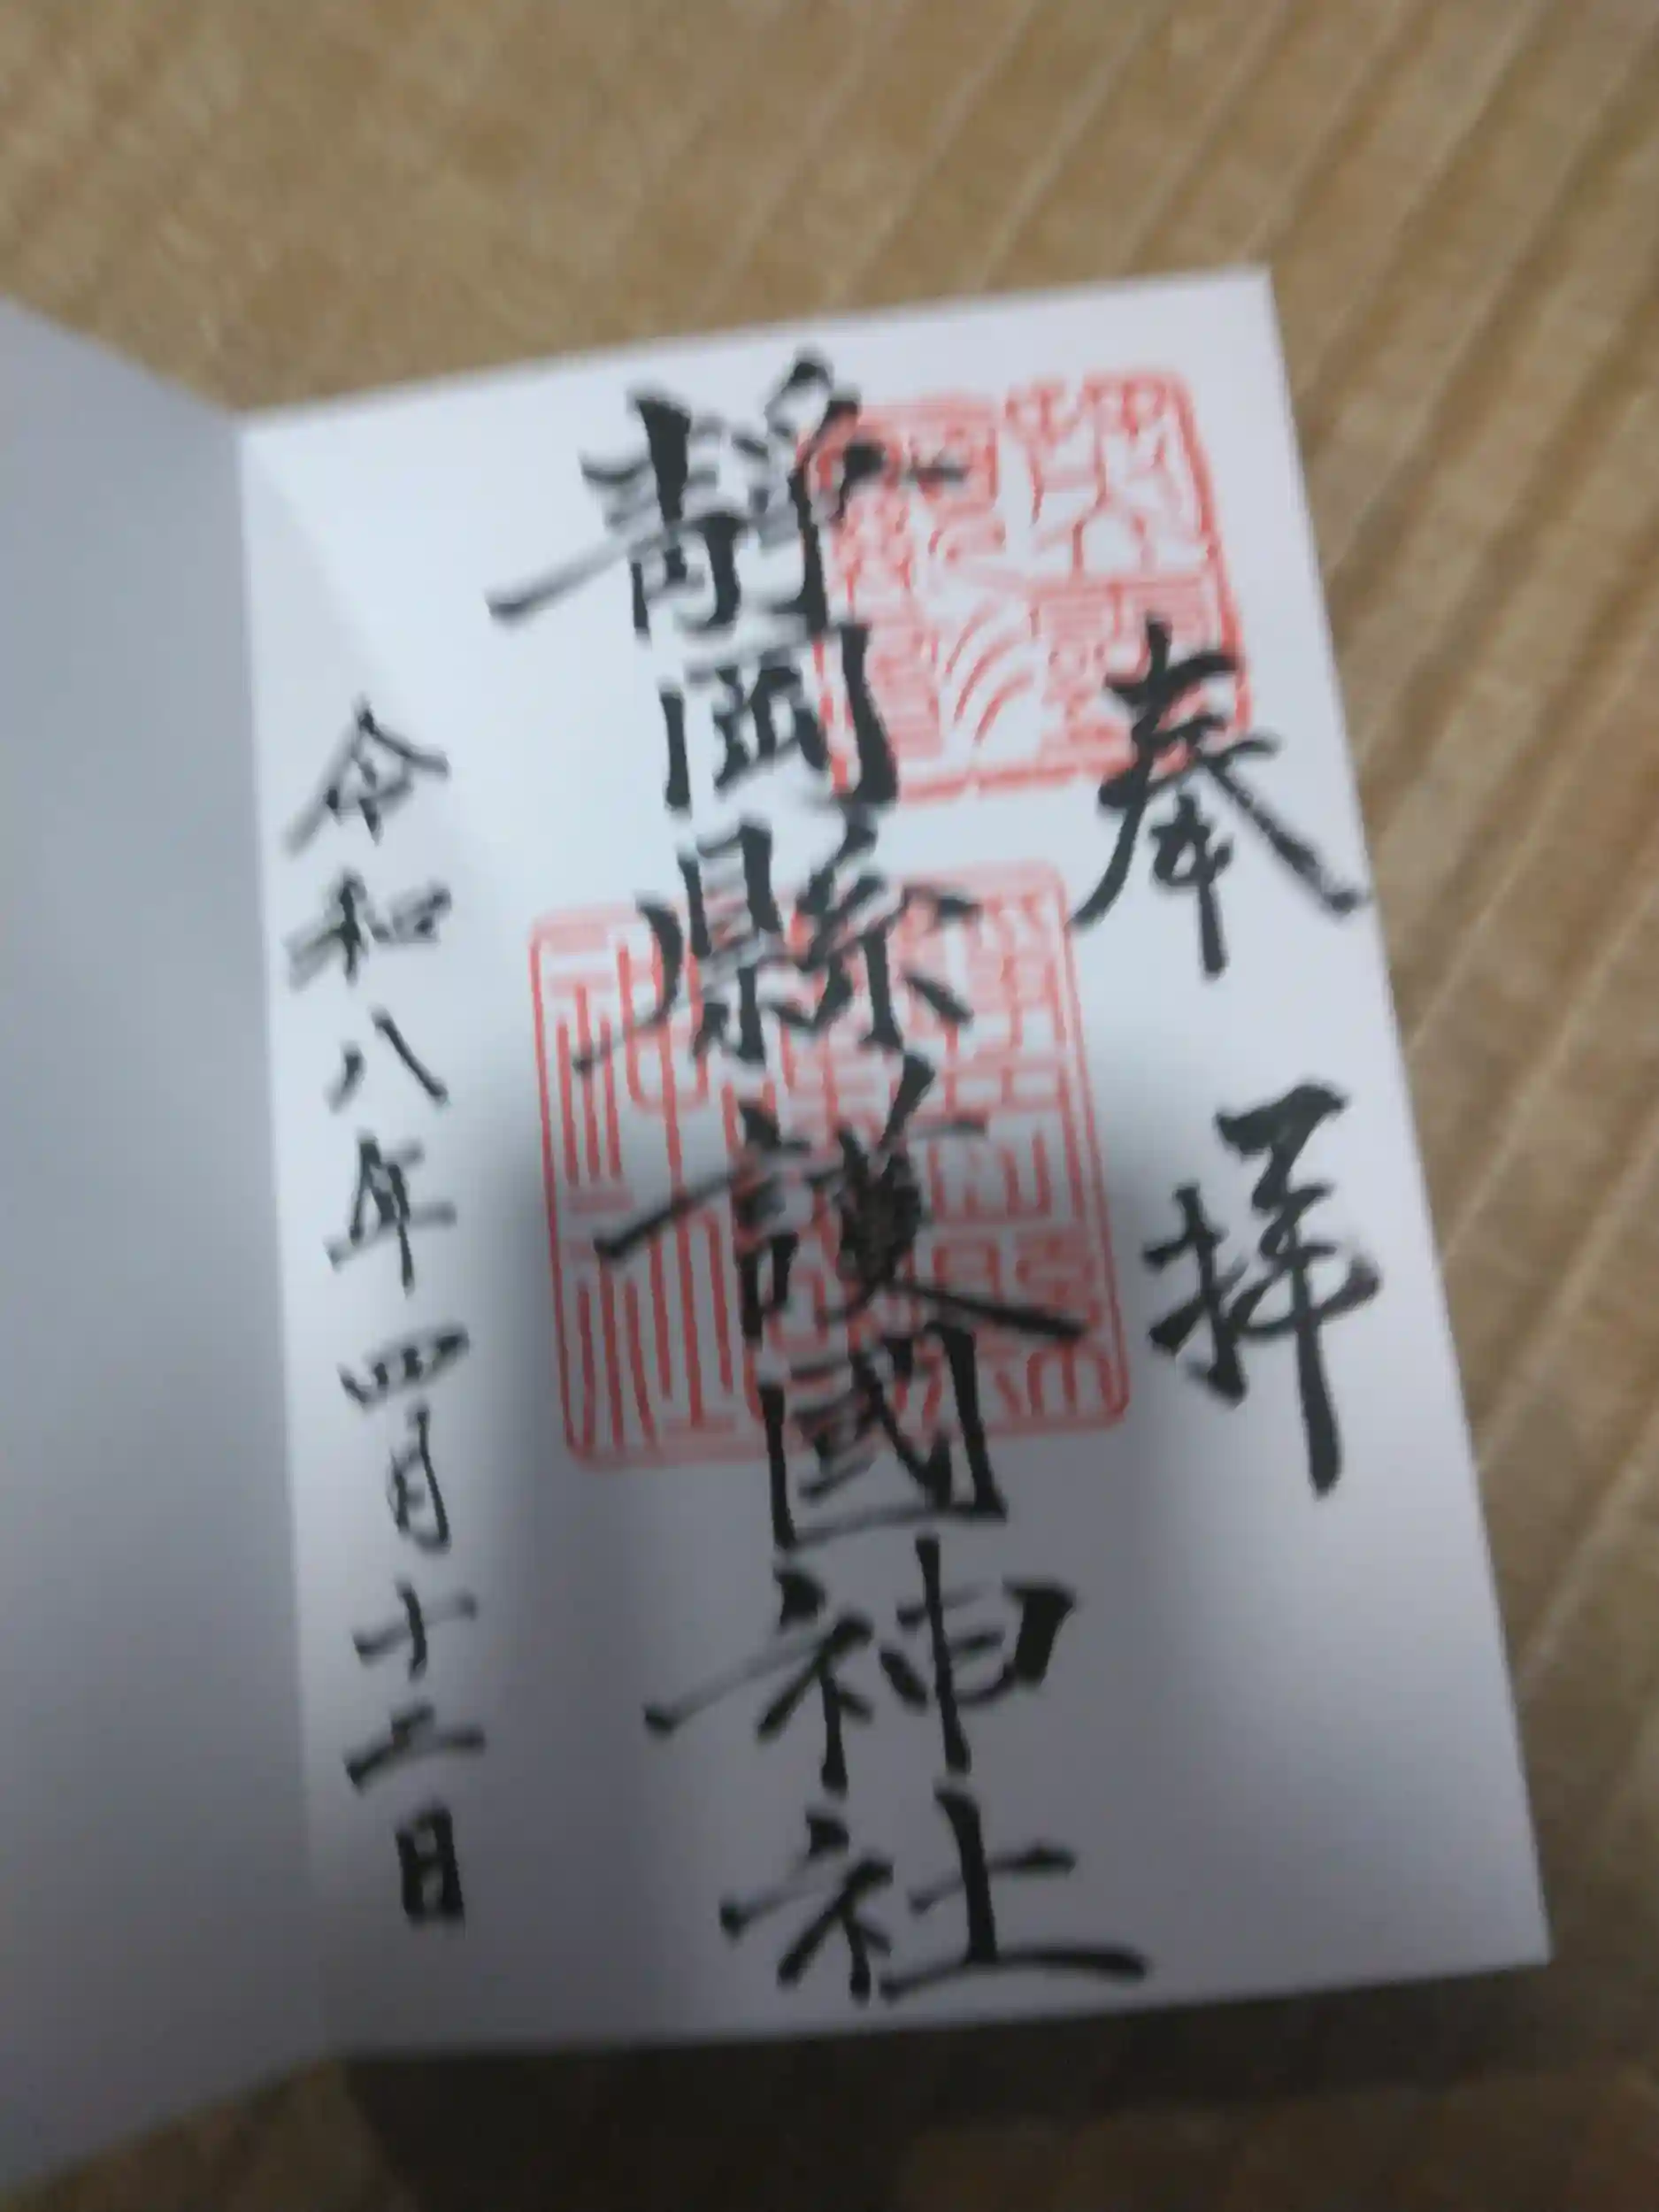 奉拝
静岡縣護國神社
令和八年四月十二日